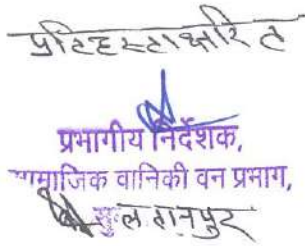 प्रतिहस्ताक्षरित
प्रभागीय निर्देशक,
सामाजिक वानिकी वन प्रभाग,
सुलतानपुर